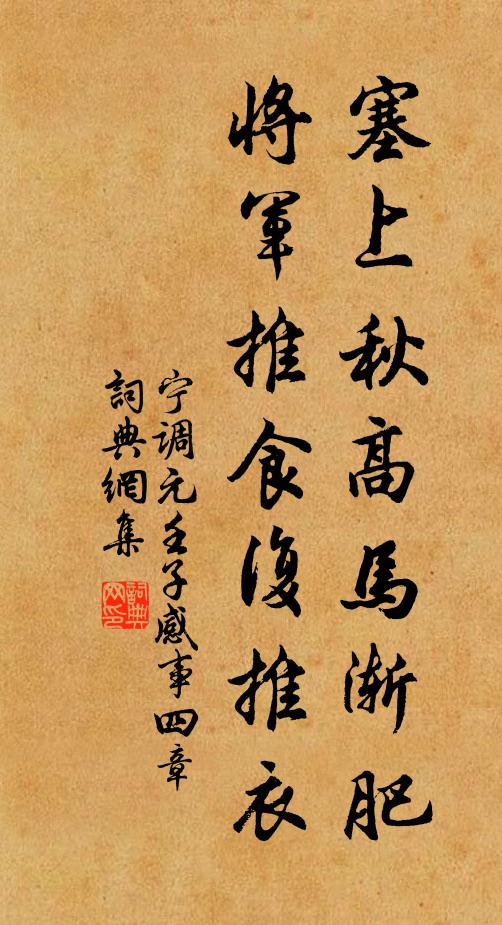 塞上秋高馬漸肥
將軍推食復推衣
宁调元壬子感事四章
詞典網集
詞典網印